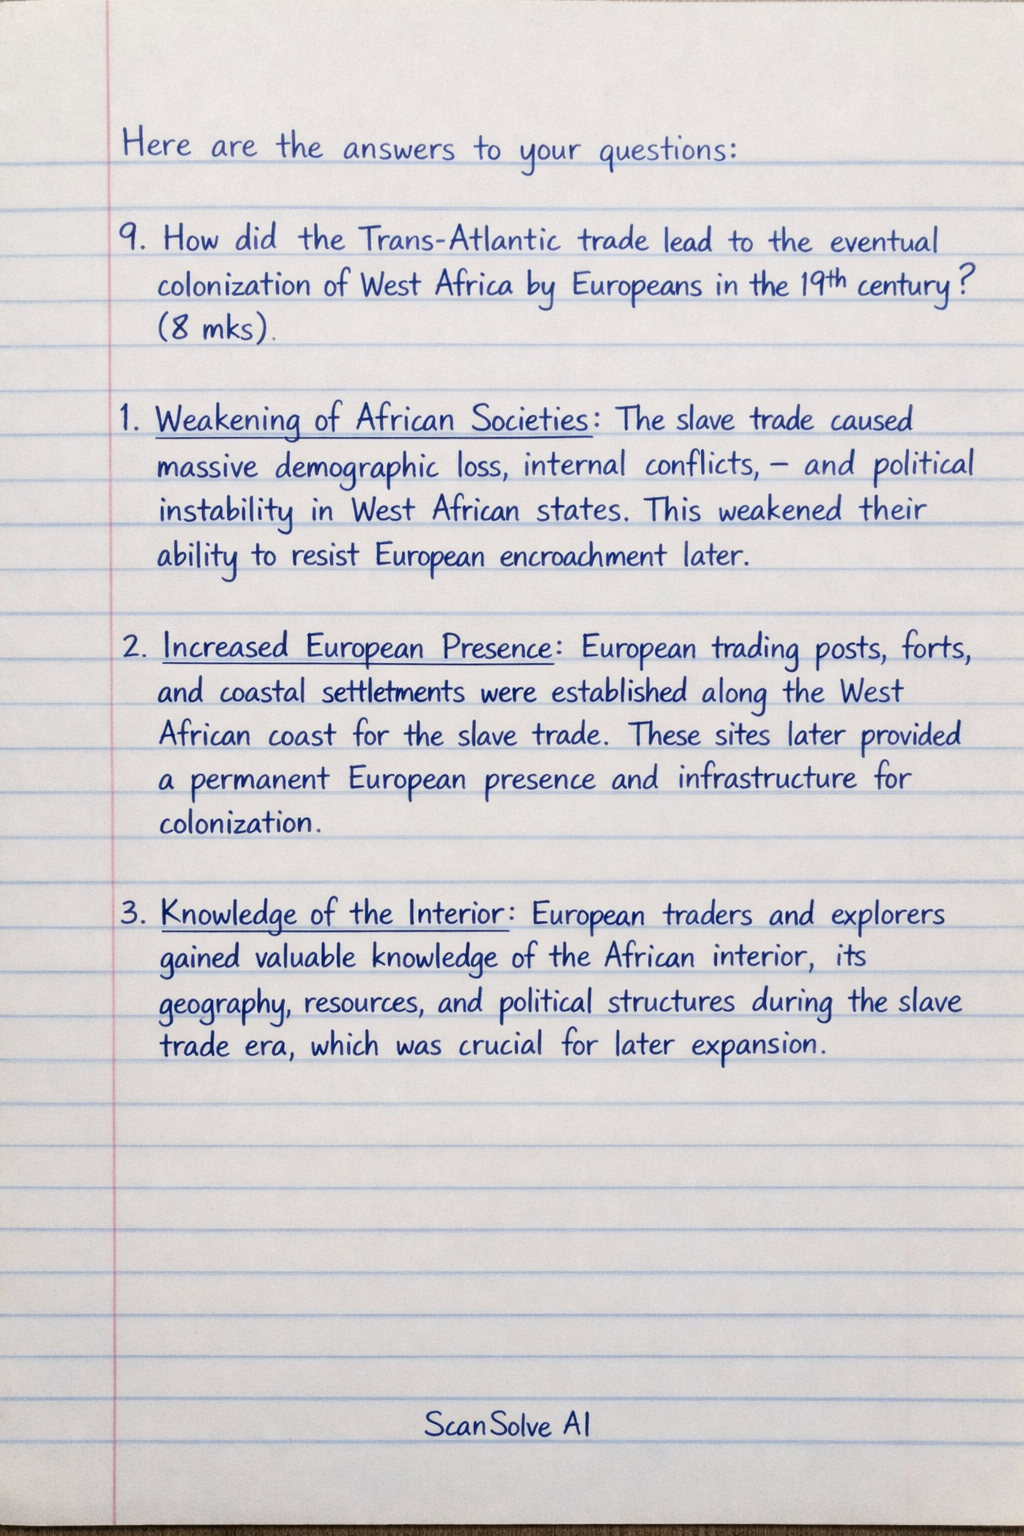 Here are the answers to your questions:
9. How did the Trans-Atlantic trade lead to the eventual
colonization of West Africa by Europeans in the 19th century?
(8 mks).
1. Weakening of African Societies: The slave trade caused
massive demographic loss, internal conflicts, – and political
instability in West African states. This weakened their
ability to resist European encroachment later.
2. Increased European Presence: European trading posts, forts,
and coastal settletments were established along the West
African coast for the slave trade. These sites later provided
a permanent European presence and infrastructure for
colonization.
3. Knowledge of the Interior: European traders and explorers
gained valuable knowledge of the African interior, its
geography, resources, and political structures during the slave
trade era, which was crucial for later expansion.
ScanSolve AI